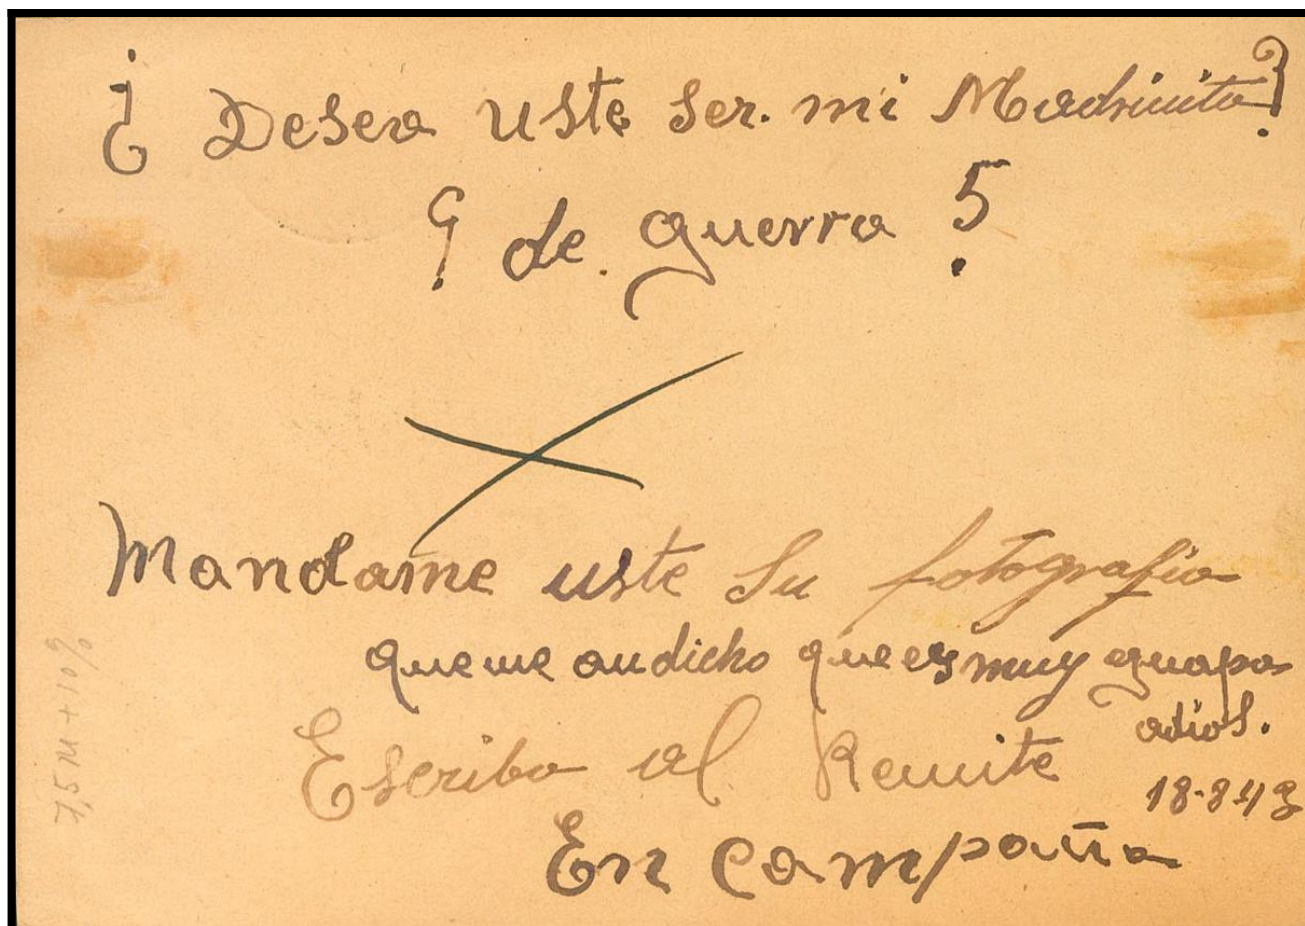 ¿ Desea uste ser. mi Madrinita?
¿ de. guerra ?
Mandame uste su fotografia
que me an dicho que es muy guapa
adios.
Escriba al Remite
18-8-43
En Campaña
7,5 M + 10%